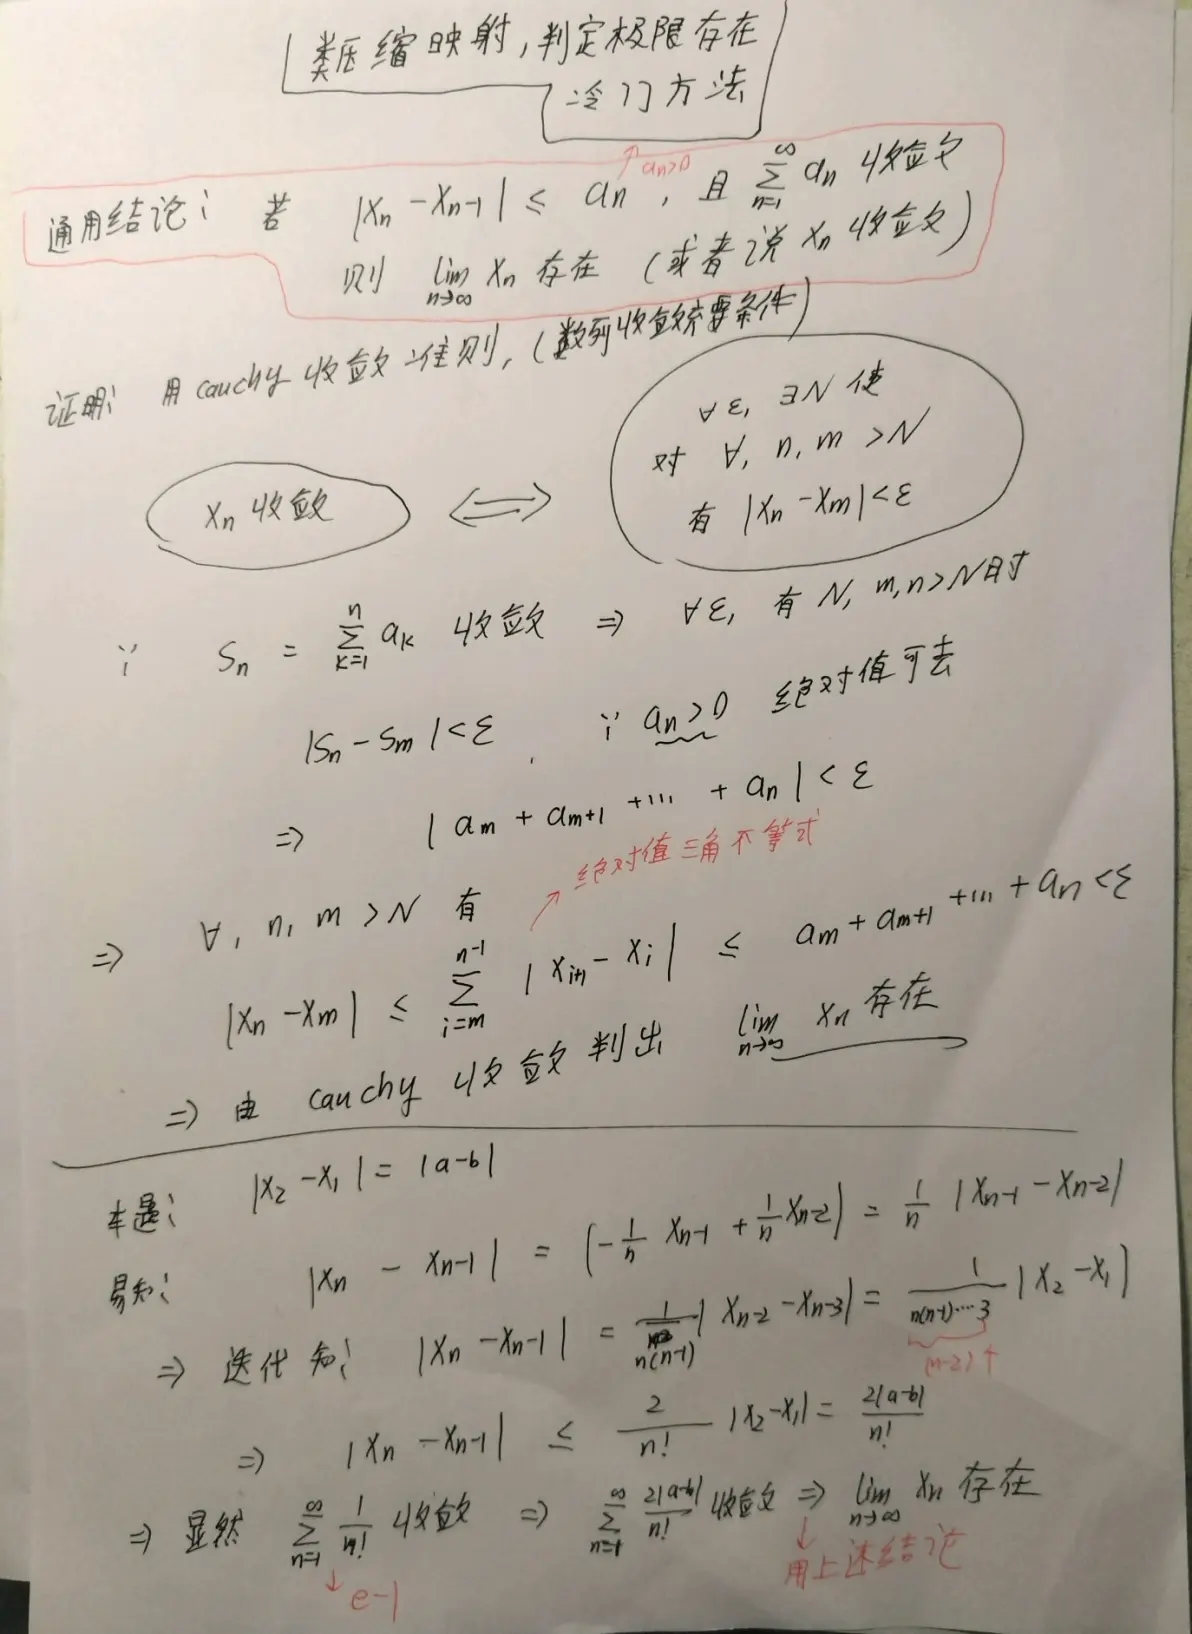 类压缩映射,判定极限存在
冷门方法
通用结论: 若 |Xn - Xn-1| ≤ an, 且 ∑_{n=1}^{∞} an 收敛
an>0
则 lim_{n→∞} Xn 存在 (或者说 Xn 收敛)
证明: 用 cauchy 收敛准则, (数列收敛充要条件)
Xn 收敛 ⟺
∀ε, ∃N 使
对 ∀, n, m >N
有 |Xn - Xm| < ε
∵ Sn = ∑_{k=1}^{n} ak 收敛 ⇒ ∀ε, 有 N, m,n>N时
|Sn - Sm| < ε, ∵ an>0 绝对值可去
⇒ |am + am+1 + ... + an| < ε
绝对值三角不等式
⇒ ∀, n, m > N 有
|Xn - Xm| ≤ ∑_{i=m}^{n-1} |Xi+1 - Xi| ≤ am + am+1 + ... + an < ε
⇒ 由 cauchy 收敛判出 lim_{n→∞} Xn 存在
本题: |X2 - X1| = |a-b|
易知: |Xn - Xn-1| = |-1/n Xn-1 + 1/n Xn-2| = 1/n |Xn-1 - Xn-2|
⇒ 迭代知: |Xn - Xn-1| = 1/n(n-1) |Xn-2 - Xn-3| = 1/n(n-1)...3 |X2 - X1|
(n-2)个
⇒ |Xn - Xn-1| ≤ 2/n! |X2-X1| = 2|a-b|/n!
⇒ 显然 ∑_{n=1}^{∞} 1/n! 收敛 ⇒ ∑_{n=1}^{∞} 2|a-b|/n! 收敛 ⇒ lim_{n→∞} Xn 存在
e-1
用上述结论